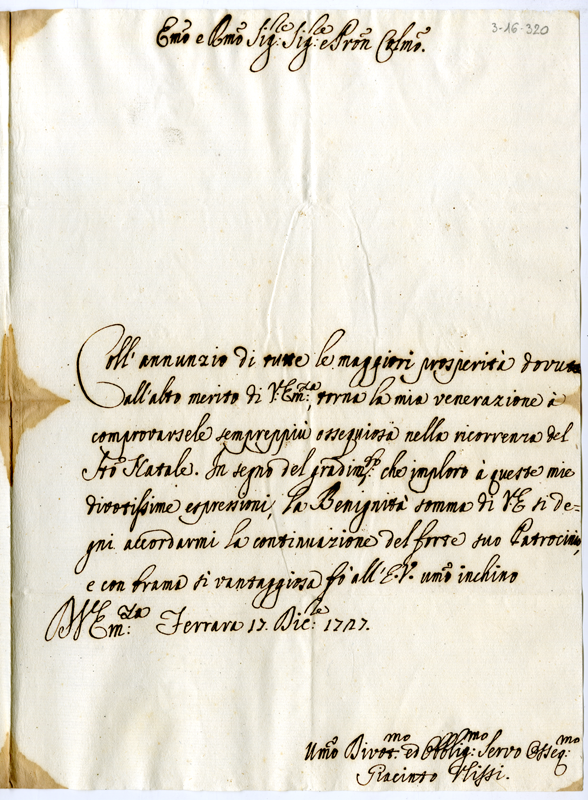 3-16-320
Emõ e Rmõ Sig.re Sig.re e Pron Colmõ.
Coll' annunzio di tutte le maggiori prosperità dovute
all'alto merito di V. Em.za, torna la mia venerazione à
comprovarsele sempreppiù ossequiosa nella ricorrenza del
Stõ Natale. In segno del gradim.to che imploro à queste mie
divotissime espressioni, la Benignità somma di V.E. si de=
gni accordarmi la continuazione del forte suo Patrocinio
e con brama si vantaggiosa fò all'E.V. umõ inchino
Di V.E. Em.za Ferrara 17. Dic.re 1727.
Umõ Divot.mo ed Obblig.mo Servo Osseq.mo
Giacinto Ulissi.